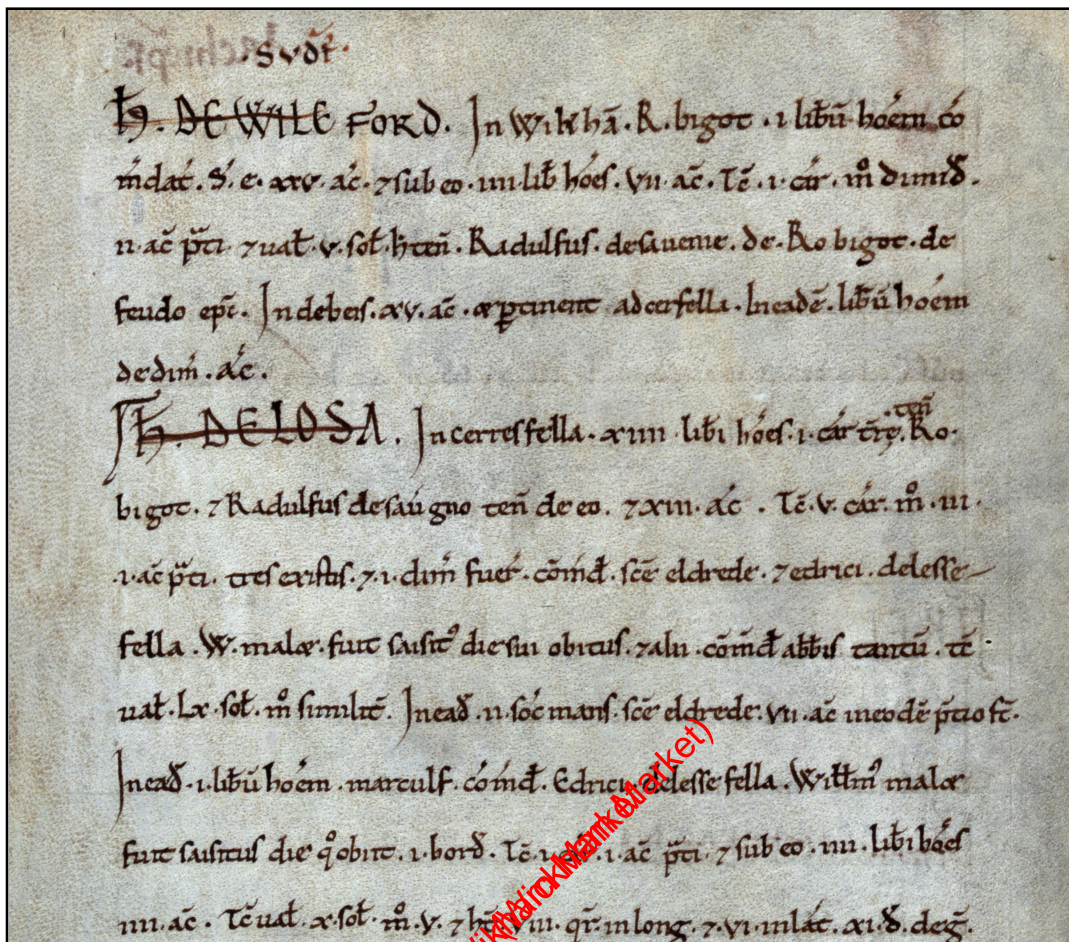 ·SVDF·
H̄. DE WILE FORD. In Wikhā. R. bigot. i libū hoēm cō
m̄dat̄. S. e. xxv. ac̄. ⁊ sub eo. iiii. lib̄ hoēs. vii. ac̄. Tc̄. i. car̄. m̊ dimid̄.
ii. ac̄ p̄ti ⁊ ual̄. v. sol̄. h̄ ten̄. Radulfus. de saueme. de. Ro bigot. de
feudo ep̄i. In debeis. xv. ac̄. æ ꝑtinent ad cerfella. In eadē. libū hoēm
de dim̄. ac̄.
H̄. DE LOSA. In cerresfella. xiiii libi hoēs. i. car̄ trę. ten̄ Ro.
bigot. ⁊ Radulfus de sau gno ten̄ de eo. ⁊ xiii. ac̄. Tc̄. v. car̄. m̊. iii.
.i. ac̄ p̄ti. tres ex istis. ⁊ .i. dim̄ fuer̄. cōmd̄. scē eldrede. ⁊ edrici. de lesse
fella. W. malæ. fuit saisit⁹ die sui obitus. ⁊ alii. cōmd̄ abb̄is tantū. tc̄.
ual̄. Lx. sol̄. m̊ similit̄. In ead̄. ii. soc̄ mans. scē eldrede. vii. ac̄ in eodē p̄tio st̄.
In ead̄. i. libū hoēm. marculf. cōmd̄. Edrici de lesse fella. Willm⁹ malæ
fuit saisitus die q̊ obiit. i. bord̄. Tc̄. i. car̄. i. ac̄ p̄ti. ⁊ sub eo. iiii. libi hoēs
iiii. ac̄. Tc̄ ual̄. x. sol̄. m̊. v. ⁊ ht̄ iii. qr̄. in long. ⁊ vi. in lat̄. xi. d̄. de ḡ.